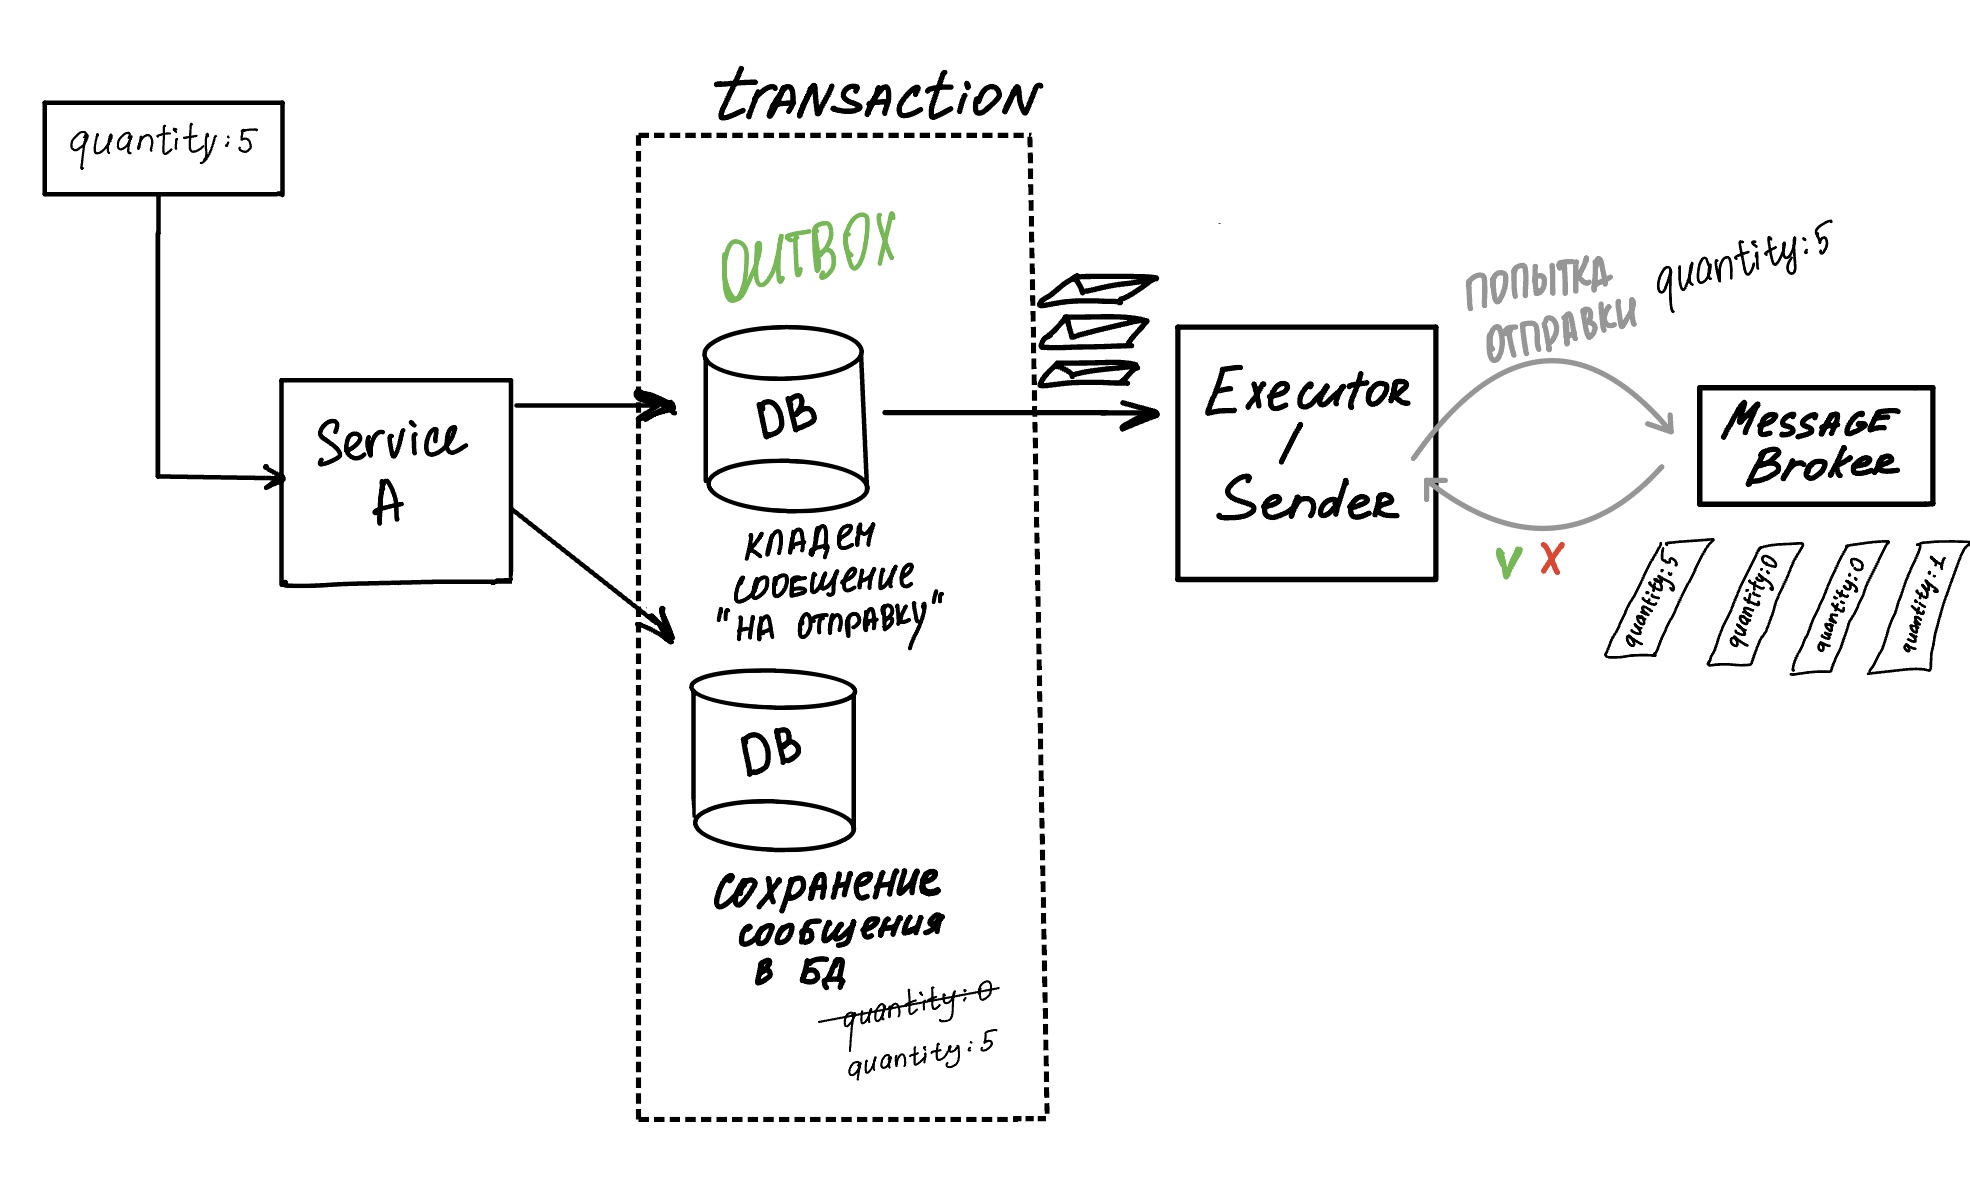 transaction
quantity:5
OUTBOX
Service
A
DB
кладем
сообщение
"на отправку"
DB
сохранение
сообщения
в БД
quantity:0
quantity:5
Executor
/
Sender
ПОПЫТКА
ОТПРАВКИ
quantity:5
Message
Broker
V X
quantity:5
quantity:0
quantity:0
quantity:1